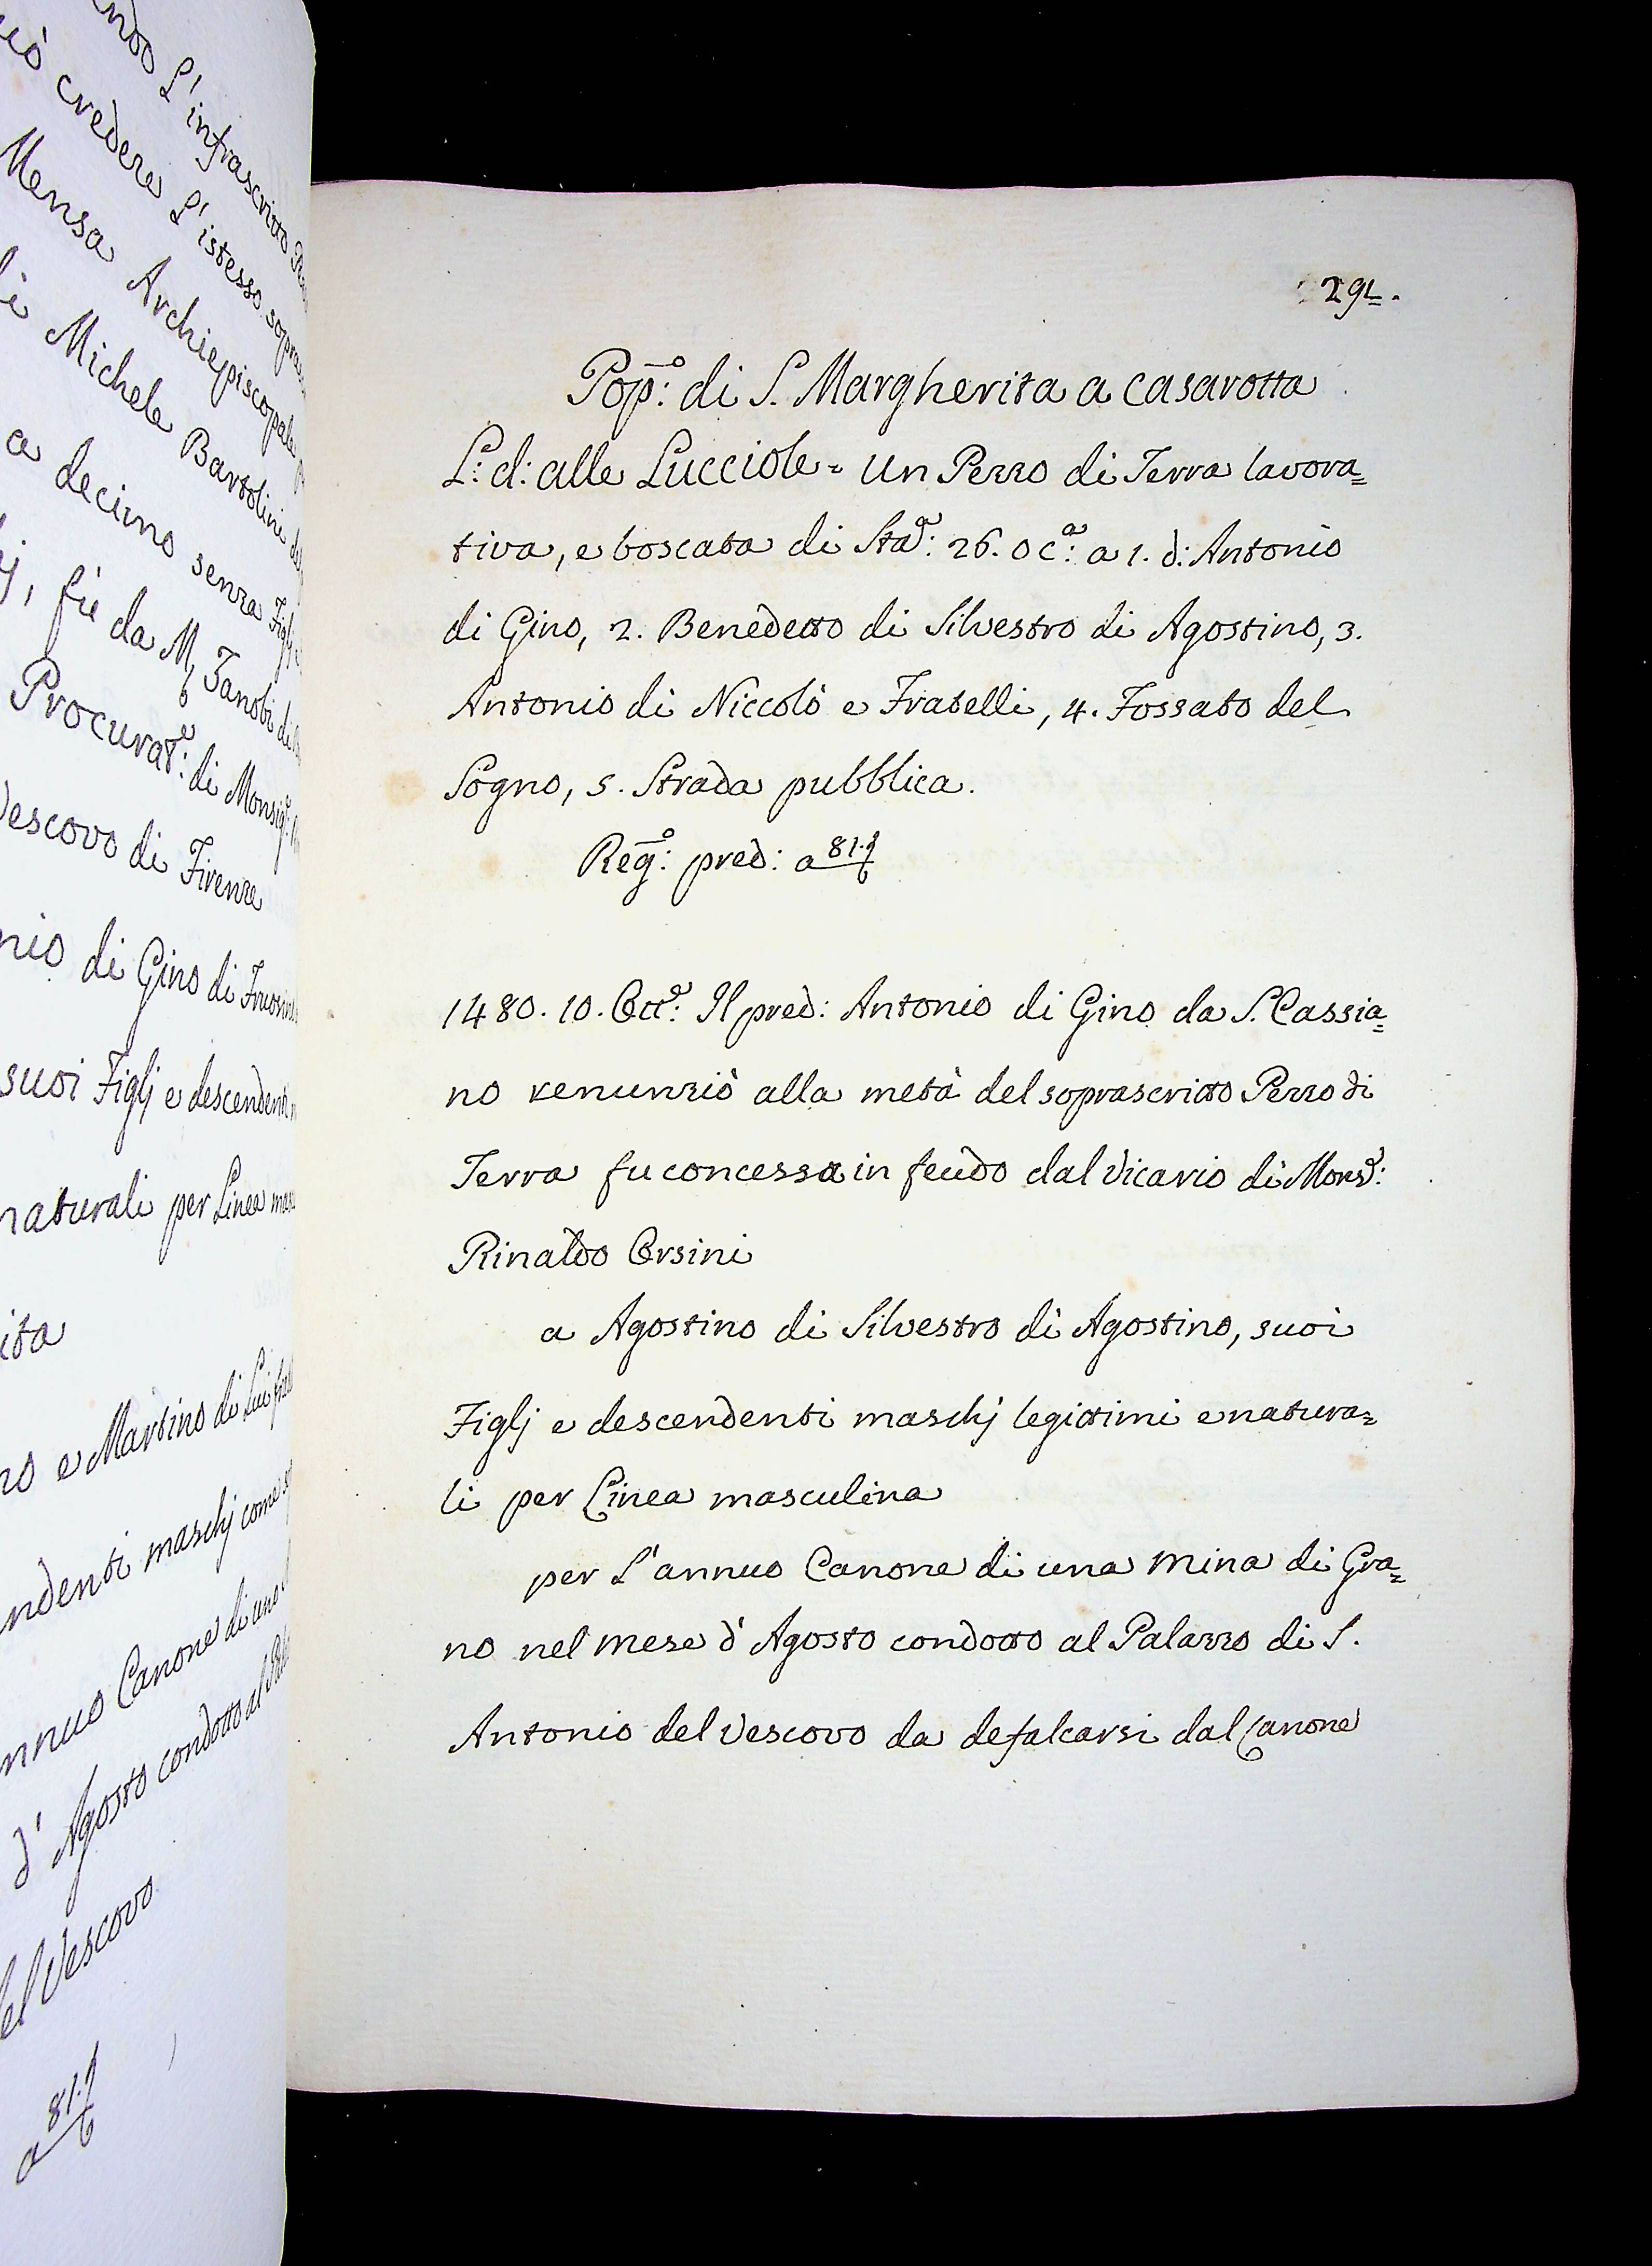 ndo L'infrascritto
iò credere L'istesso sopra
Mensa Archiepiscopale
Michele Bartolini
a decimo senza Figlj
fù da M Zanobi di
Procurat.e: di Monsig.r:
Vescovo di Firenze
nio di Gino di
suoi Figlj e descendenti
naturali per Linea mas
ita
no e Martino di Lui
ndenti maschj come
nnuo Canone di uno
d'Agosto condotto al
del Vescovo
a 81.
291.
Pop.o: di S. Margherita a Casarotta
L: d: alle Lucciole = un Pezzo di Terra lavora=
tiva, e boscata di Sta.a: 26. o c.a: a 1. d: Antonio
di Gino, 2. Benedetto di Silvestro di Agostino, 3.
Antonio di Niccolò e Fratelli, 4. Fossato del
Sogno, 5. Strada pubblica.
Reg.o: pred: a 81.
1480. 10. Ott.e: Il pred: Antonio di Gino da S. Cassia=
no renunziò alla metà del soprascritto Pezzo di
Terra fu concessa in feudo dal Vicario di Mons.e:
Rinaldo Orsini
a Agostino di Silvestro di Agostino, suoi
Figlj e descendenti maschj legittimi e natura=
li per Linea masculina
per L'annuo Canone di una mina di Gra=
no nel mese d'Agosto condotto al Palazzo di S.
Antonio del Vescovo da defalcarsi dal Canone